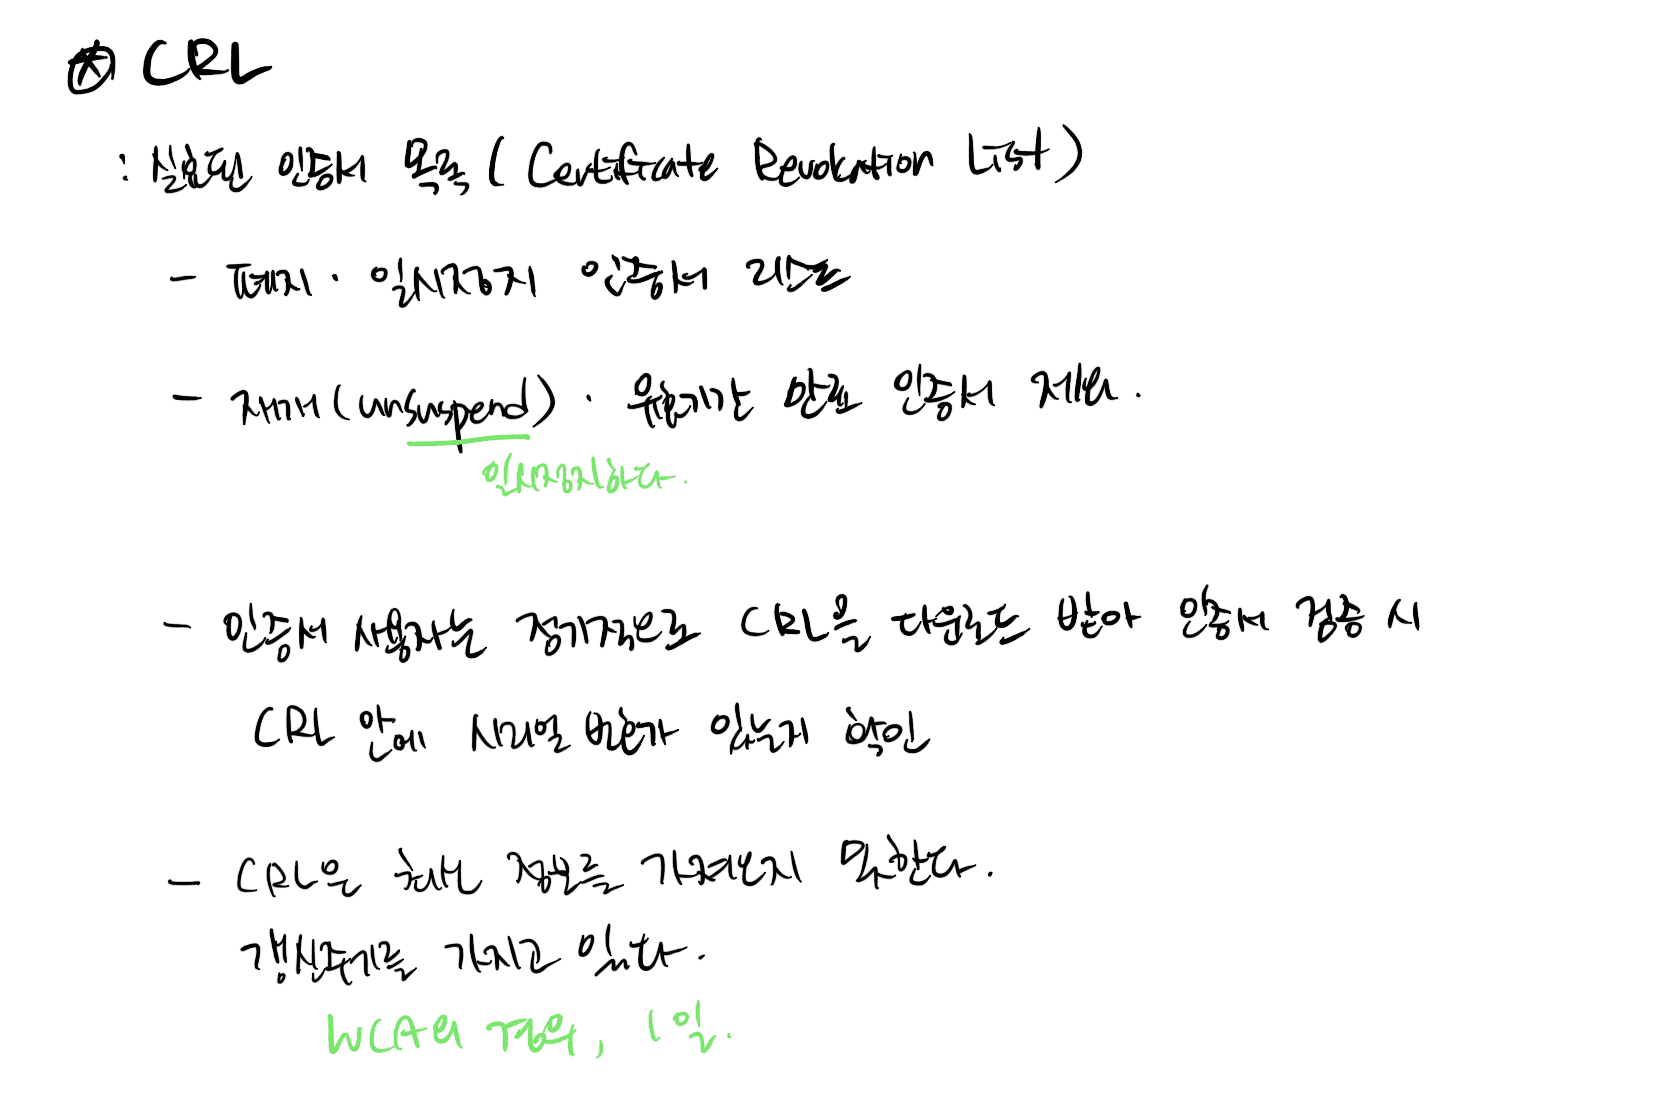 ⊛ CRL
: 실효된 인증서 목록 (Certificate Revokation List)
- 폐지 · 일시정지 인증서 리스트
- 재개(unsuspend) · 유효기간 만료 인증서 제외.
일시정지하다.
- 인증서 사용자는 정기적으로 CRL을 다운로드 받아 인증서 검증 시
CRL 안에 시리얼 번호가 있는지 확인
- CRL은 최신 정보를 가져오지 못한다.
갱신주기를 가지고 있다.
WCA의 경우, 1일.